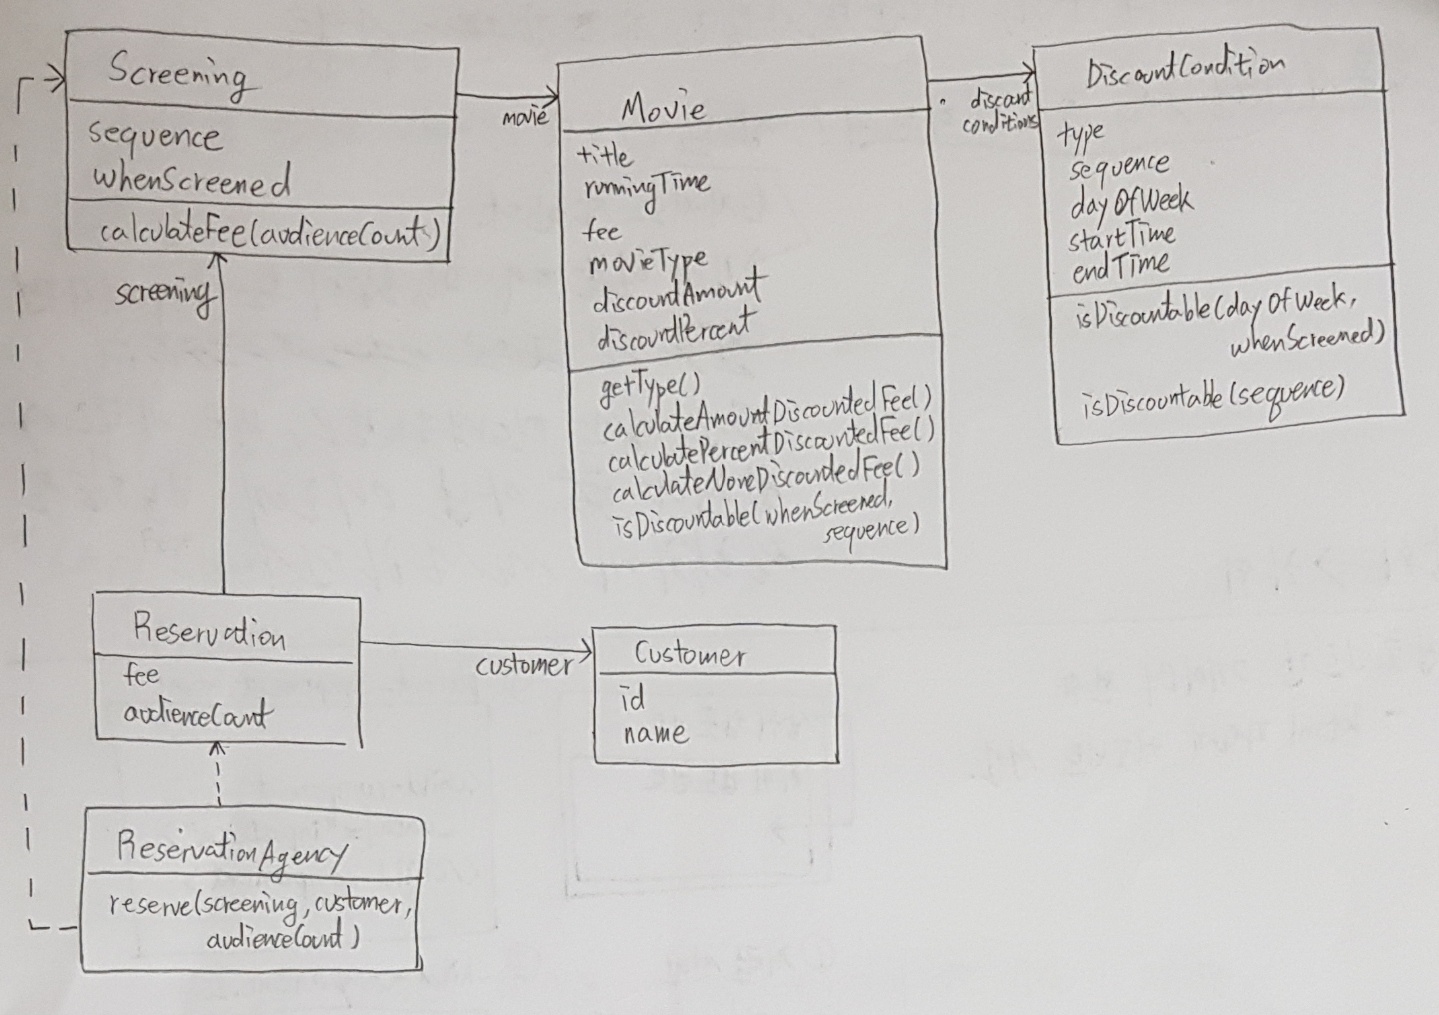 Screening
sequence
whenScreened
calculateFee(audienceCount)
movie
Movie
title
runningTime
fee
movieType
discountAmount
discountPercent
getType()
calculateAmountDiscountedFee()
calculatePercentDiscountedFee()
calculateNoneDiscountedFee()
isDiscountable(whenScreened,
sequence)
discount
conditions
DiscountCondition
type
sequence
dayOfWeek
startTime
endTime
isDiscountable(dayOfWeek,
whenScreened)
isDiscountable(sequence)
screening
Reservation
fee
audienceCount
customer
Customer
id
name
ReservationAgency
reserve(screening, customer,
audienceCount)